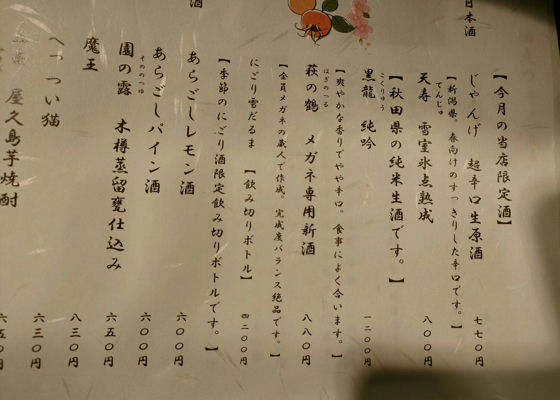 日本酒
【今月の当店限定酒】
じゃんげ 超辛口生原酒 七七〇円
【新潟県。春向けのすっきりした辛口です。】
てんじゅ
天寿 雪室氷点熟成 八〇〇円
【秋田県の純米生酒です。】
こくりゅう
黒龍 純吟 一二〇〇円
【爽やかな香りでやや辛口。食事によく合います。】
はぎのつる
萩の鶴 メガネ専用新酒 八八〇円
【全員メガネの蔵人で作成。完成度バランス絶品です。】
にごり雪だるま 【飲み切りボトル】 四二〇〇円
【季節のにごり酒限定飲み切りボトルです。】
酒
あらごしレモン酒 六〇〇円
あらごしパイン酒 六〇〇円
そののつゆ
園の露 木樽蒸留甕仕込み 六五〇円
魔王 八三〇円
へっつい猫 六三〇円
屋久島芋焼酎 六五〇円